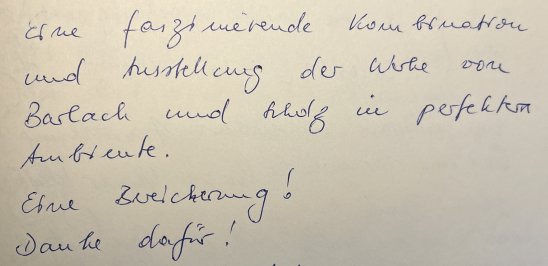 Eine faszinierende Kombination
und Ausstellung der Werke von
Barlach und Scholz in perfektem
Ambiente.
Eine Bereicherung!
Danke dafür!